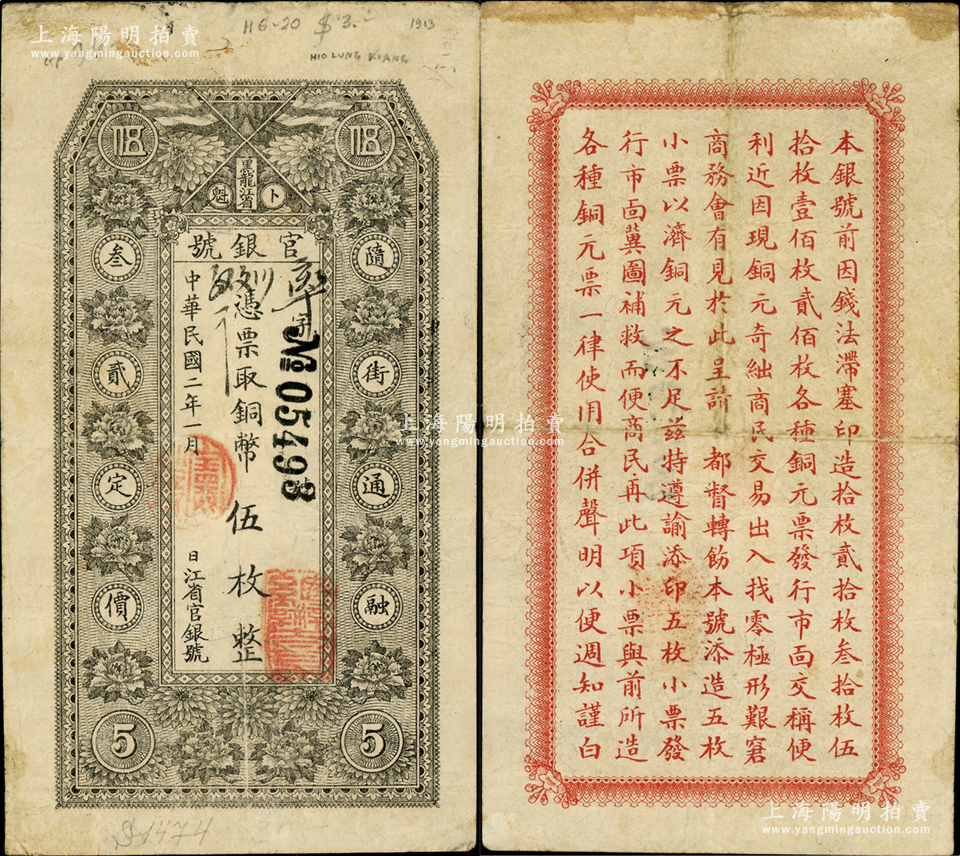 上海陽明拍賣
www.yangmingauction.com
H6-20 $3.-
1913
HIO LUNG KIANG
伍
伍
黑龍江省
卜魁
官銀號
隨街通融
字
№ 05498
號
憑票取銅幣伍枚整
中華民國二年一月 日江省官銀號
叁貳定價
5
5
$1474
上海陽明拍賣
www.yangmingauction.com
上海陽明拍賣
www.yangmingauction.com
本銀號前因錢法滯塞印造拾枚貳拾枚叁拾枚伍
拾枚壹佰枚貳佰枚各種銅元票發行市面交稱便
利近因現銅元奇絀商民交易出入找零極形艱窘
商務會有見於此呈請 都督轉飭本號添造五枚
小票以濟銅元之不足茲特遵諭添印五枚小票發
行市面冀圖補救而便商民再此項小票與前所造
各種銅元票一律使用合併聲明以便週知謹白
上海陽明拍賣
www.yangmingauction.com